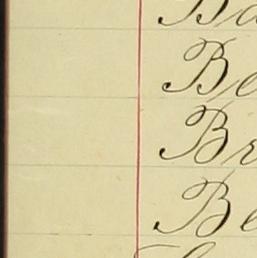 Ba
Be
Br
Be